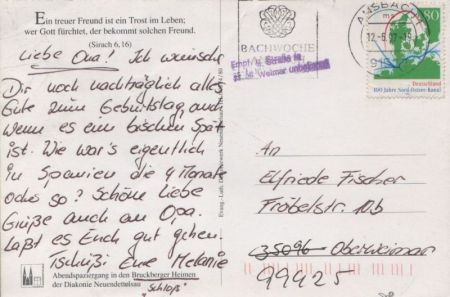 Ein treuer Freund ist ein Trost im Leben;
wer Gott fürchtet, der bekommt solchen Freund.
(Sirach 6, 16)
Liebe Oma! Ich wünsche
Dir noch nachträglich alles
Gute zum Geburtstag, auch
wenn es ein bischen spät
ist. Wie war's eigentlich
in Spanien die 4 Monate
oder so? Schöne liebe
Grüße auch an Opa.
Laßt es Euch gut gehen.
Tschüßi Eure Melanie
Abendspaziergang in den Bruckberger Heimen
der Diakonie Neuendettelsau
"Schloß"
BACHWOCHE
ANSBACH
12.-5.97-15
80
Deutschland
100 Jahre Nord-Ostsee-Kanal
An
Elfriede Fischer
Fröbelstr. 10b
35096 Oberweimar
99425